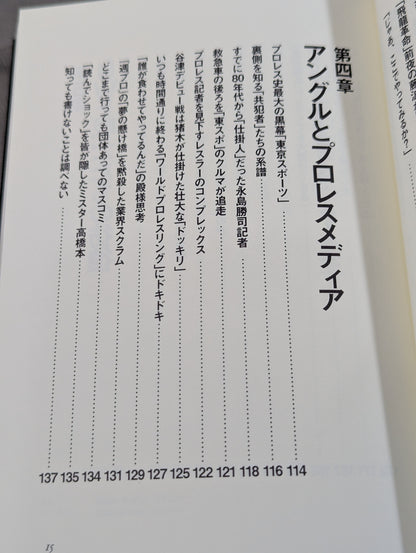 第四章
アングルとプロレスメディア
プロレス史最大の黒幕「東京スポーツ」 114
裏側を知る「共犯者」たちの系譜 116
すでに80年代から「仕掛人」だった永島勝司記者 118
救急車の後ろを「東スポ」のクルマが追走 121
プロレス記者を見下すレスラーのコンプレックス 122
谷津デビュー戦は猪木が仕掛けた壮大な「ドッキリ」 125
いつも時間通りに終わる「ワールドプロレスリング」にドキドキ 127
「誰が食わせてやってるんだ」の殿様思考 129
「週プロ」の「夢の懸け橋」を黙殺した業界スクラム 131
どこまで行っても団体あってのマスコミ 134
「読んでショック」を皆が隠したミスター高橋本 135
知っても書けないことは調べない 137
15